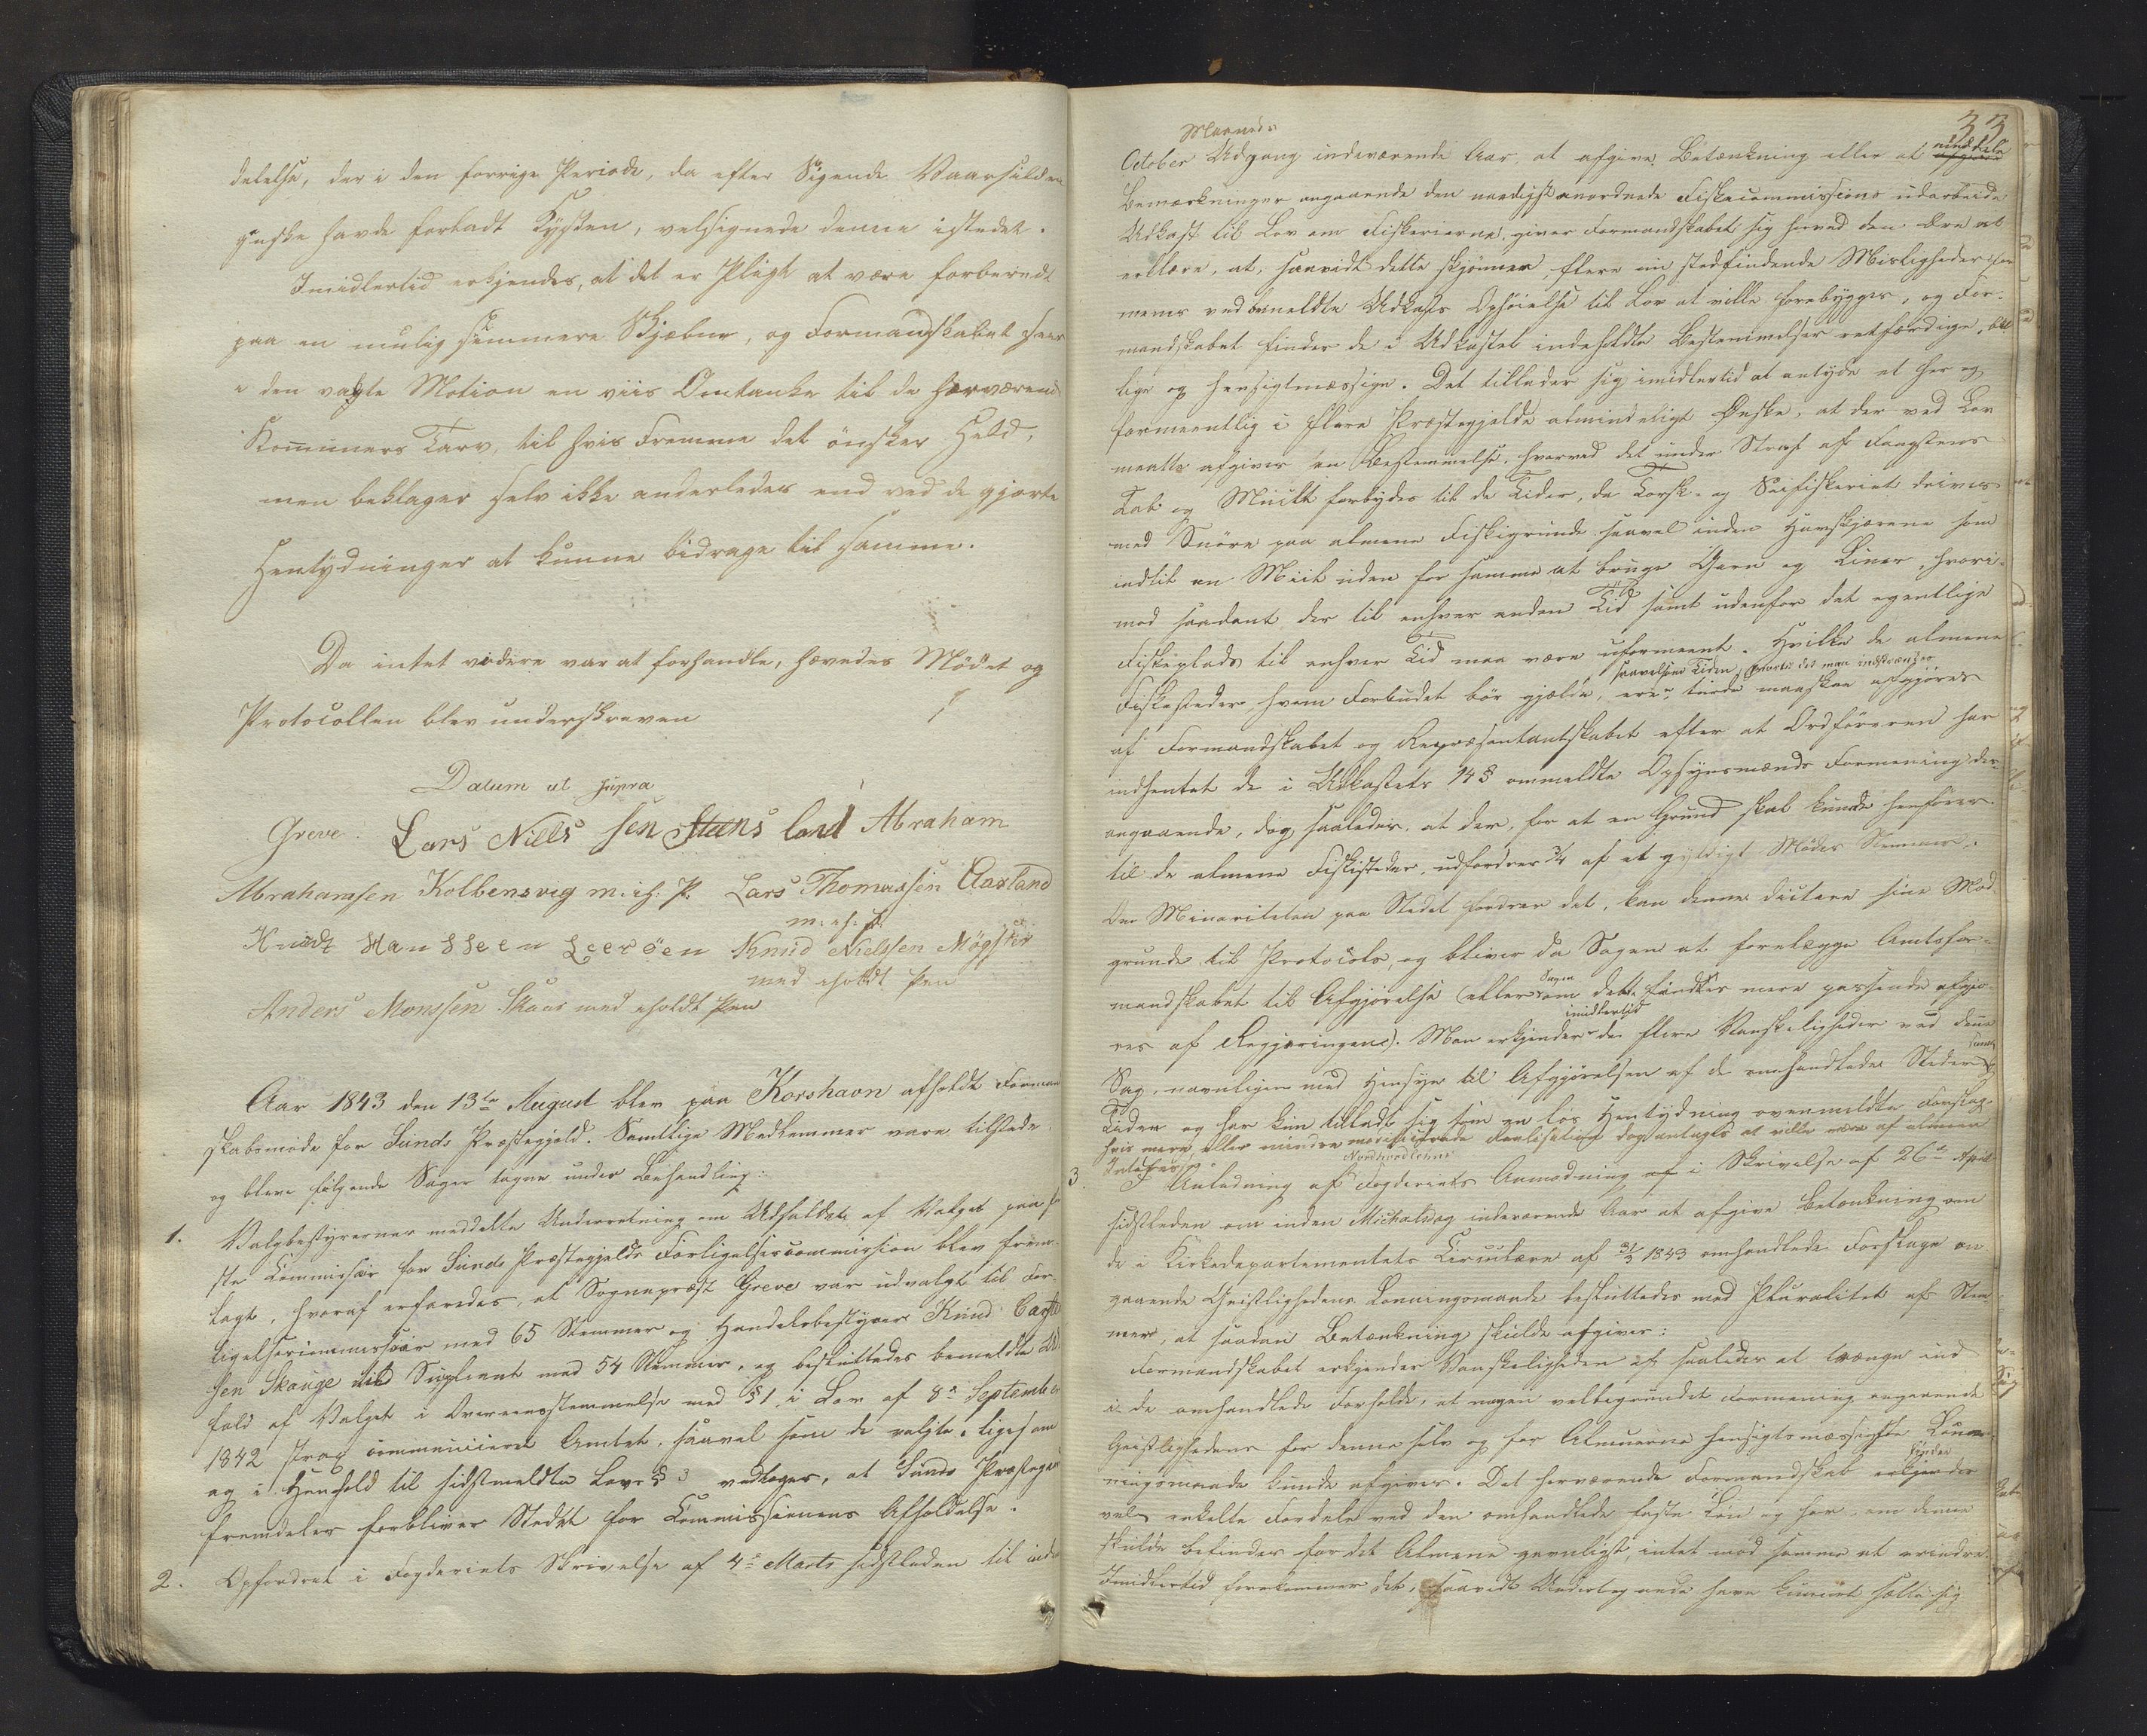 delelse, der i den forrige Periode, da efter Sigende Vaarsilden
ganske havde forladt Kysten, velsignede denne istedet.
Imidlertid erkjendes, at det er Pligt at være forberedt
paa en mulig slemmere Skjæbne, og Formandskabet seer
i den vagte Motion en viis Omtanke til de herværende
Kommuners Tarv, til hvis Fremme det ønsker Held,
men beklager selv ikke anderledes end ved de gjorte
Hentydninger at kunne bidrage til samme.
Da intet videre var at forhandle, hævedes Mødet og
Protocollen blev underskreven
Datum ut supra
Greve. Lars Niels sen Steens land Abraham
Abrahamsen Kolbensvig m. ih. P. Lars Thomassen Aarland
m. ih. P.
Knudt Hansseen Leerøen Knud Nielssen Møgster
med iholdt Pen
Anders Monssen Skaar med iholdt Pen
Aar 1843 den 13de August blev paa Korshavn afholdt Formand
skabsmøde for Sunds Præstegjeld. Samtlige Medlemmer vare tilstede
og bleve følgende Sager tagne under Behandling:
1. Valgbestyrernes meddelte Underretning om Udfaldet af Valget paa før
ste Kommissær for Sunds Præstegjelds Forligelsescommission blev frem-
lagt, hvoraf erfaredes, at Sognepræst Greve var udvalgt til For-
ligelsescommissær med 65 Stemmer og Handelsbestyrer Knud Carste
sen Skauge til Supleant med 54 Stemmer, og besluttedes bemeldte Ud
fald af Valget i Overeensstemmelse med § 1 i Lov af 8de September
1842 strax communiceret Amtet, saavel som de valgte, ligesom
og i Henhold til sidstmeldte Lovs § 3 vedtoges, at Sunds Præstegaard
fremdeles forbliver Stedet for Commissionens Afholdelse.
2. Opfordret i Fogderiets Skrivelse af 4de Marts sidstleden til inden
33
Maaneds
October Udgang indeværende Aar, at afgive Betænkning eller at meddele
Bemærkninger angaaende den naadigst anordnede Fiskecommissions udarbeide
Udkast til Lov om Fiskerierne, giver Formandskabet sig herved den Ære at
erklære, at, saavidt dette skjønner, flere nu stedfindende Misligheder
menes ved anmeldte Udkasts Ophøielse til Lov at ville forebygges, og For-
mandskabet finder de i Udkastet indeholdte Bestemmelser retfærdige, bil
lige og hensigtmæssige. Det tillader sig imidlertid at antyde et her og
formeentlig i flere Præstegjelde almindeligt Ønske, at der ved Lov
maatte afgives en Bestemmelse, hvorved det under Straf af Fangstens
Tab og Mulkt forbydes til de Tider, da Torsk- og Seifiskeriet drives
med Snøre paa almene Fiskegrunde saavel inden Havskjærene som
indtil en Miil uden for samme at bruge Garn og Liner, hvori-
mod saadant der til enhver anden Tid samt udenfor det egentlige
Fiskeplads til enhver Tid maa være uformeent. Hvilke de almene
saavelsom Tiden, hvortil det maa indskrænkes
Fiskesteder, hvem Forbudet bør gjælde, ere, turde maaskee afgjøres
af Formandskabet og Repræsentantskabet efter at Ordføreren har
indhentet de i Udkastets 14 § ommeldte Opsynsmænds Formening der-
angaaende, dog saaledes, at der, for at en Grund skal kunne henføres
til de almene Fiskesteder, udfordres 3/4 af et gyldigt Mødes Stemmer.
Om Minoriteten paa Stedet fordrer det, kan denne dictere sine Mod
grunde til Protocols, og bliver da Sagen at forelægge Amtsfor-
mandskabet til Afgjørelse (eller Sagen om dette findes mere passende afgjø-
res af Regjeringen). Man erkjender imidlertid de flere Vanskeligheder ved denne
Sag, navnligen med Hensyn til Afgjørelsen af de omhandlede Steder samt
Tiden og har kun tilladt sig som en løs Hentydning ovenmeldte Forslag,
hvis mere eller mindre modificerede Realisation dog antages at ville være af almeen
Interesse.
3. I Anledning af Nordhordlehns Fogderiets Anmodning af i Skrivelse af 26de April
sidstleden om inden Michelsdag indeværende Aar at afgive Betænkning om
de i Kirkedepartementets Circulære af 31/3 1843 omhandlede Forslage an
gaaende Geistlighedens Lønningsmaade besluttedes med Pluralitet af Stem
mer, at saadan Betænkning skulde afgives:
Formandskabet erkjender Vanskeligheden af saaledes at trænge ind
i de omhandlede Forholde, at nogen velbegrundet Formening angaaende
Geistlighedens for denne selv og for Almuerne hensigtsmæssigste Løn-
ningsmaade kunde afgives. Det herværende Formandskab finder
vel enkelte Fordele ved den omhandlede faste Løn og har, om denne
skulde befindes for det Almene gavnligst, intet mod samme at erindre.
Imidlertid forekommer det, saavidt Undertegnede have kunnet sætte sig